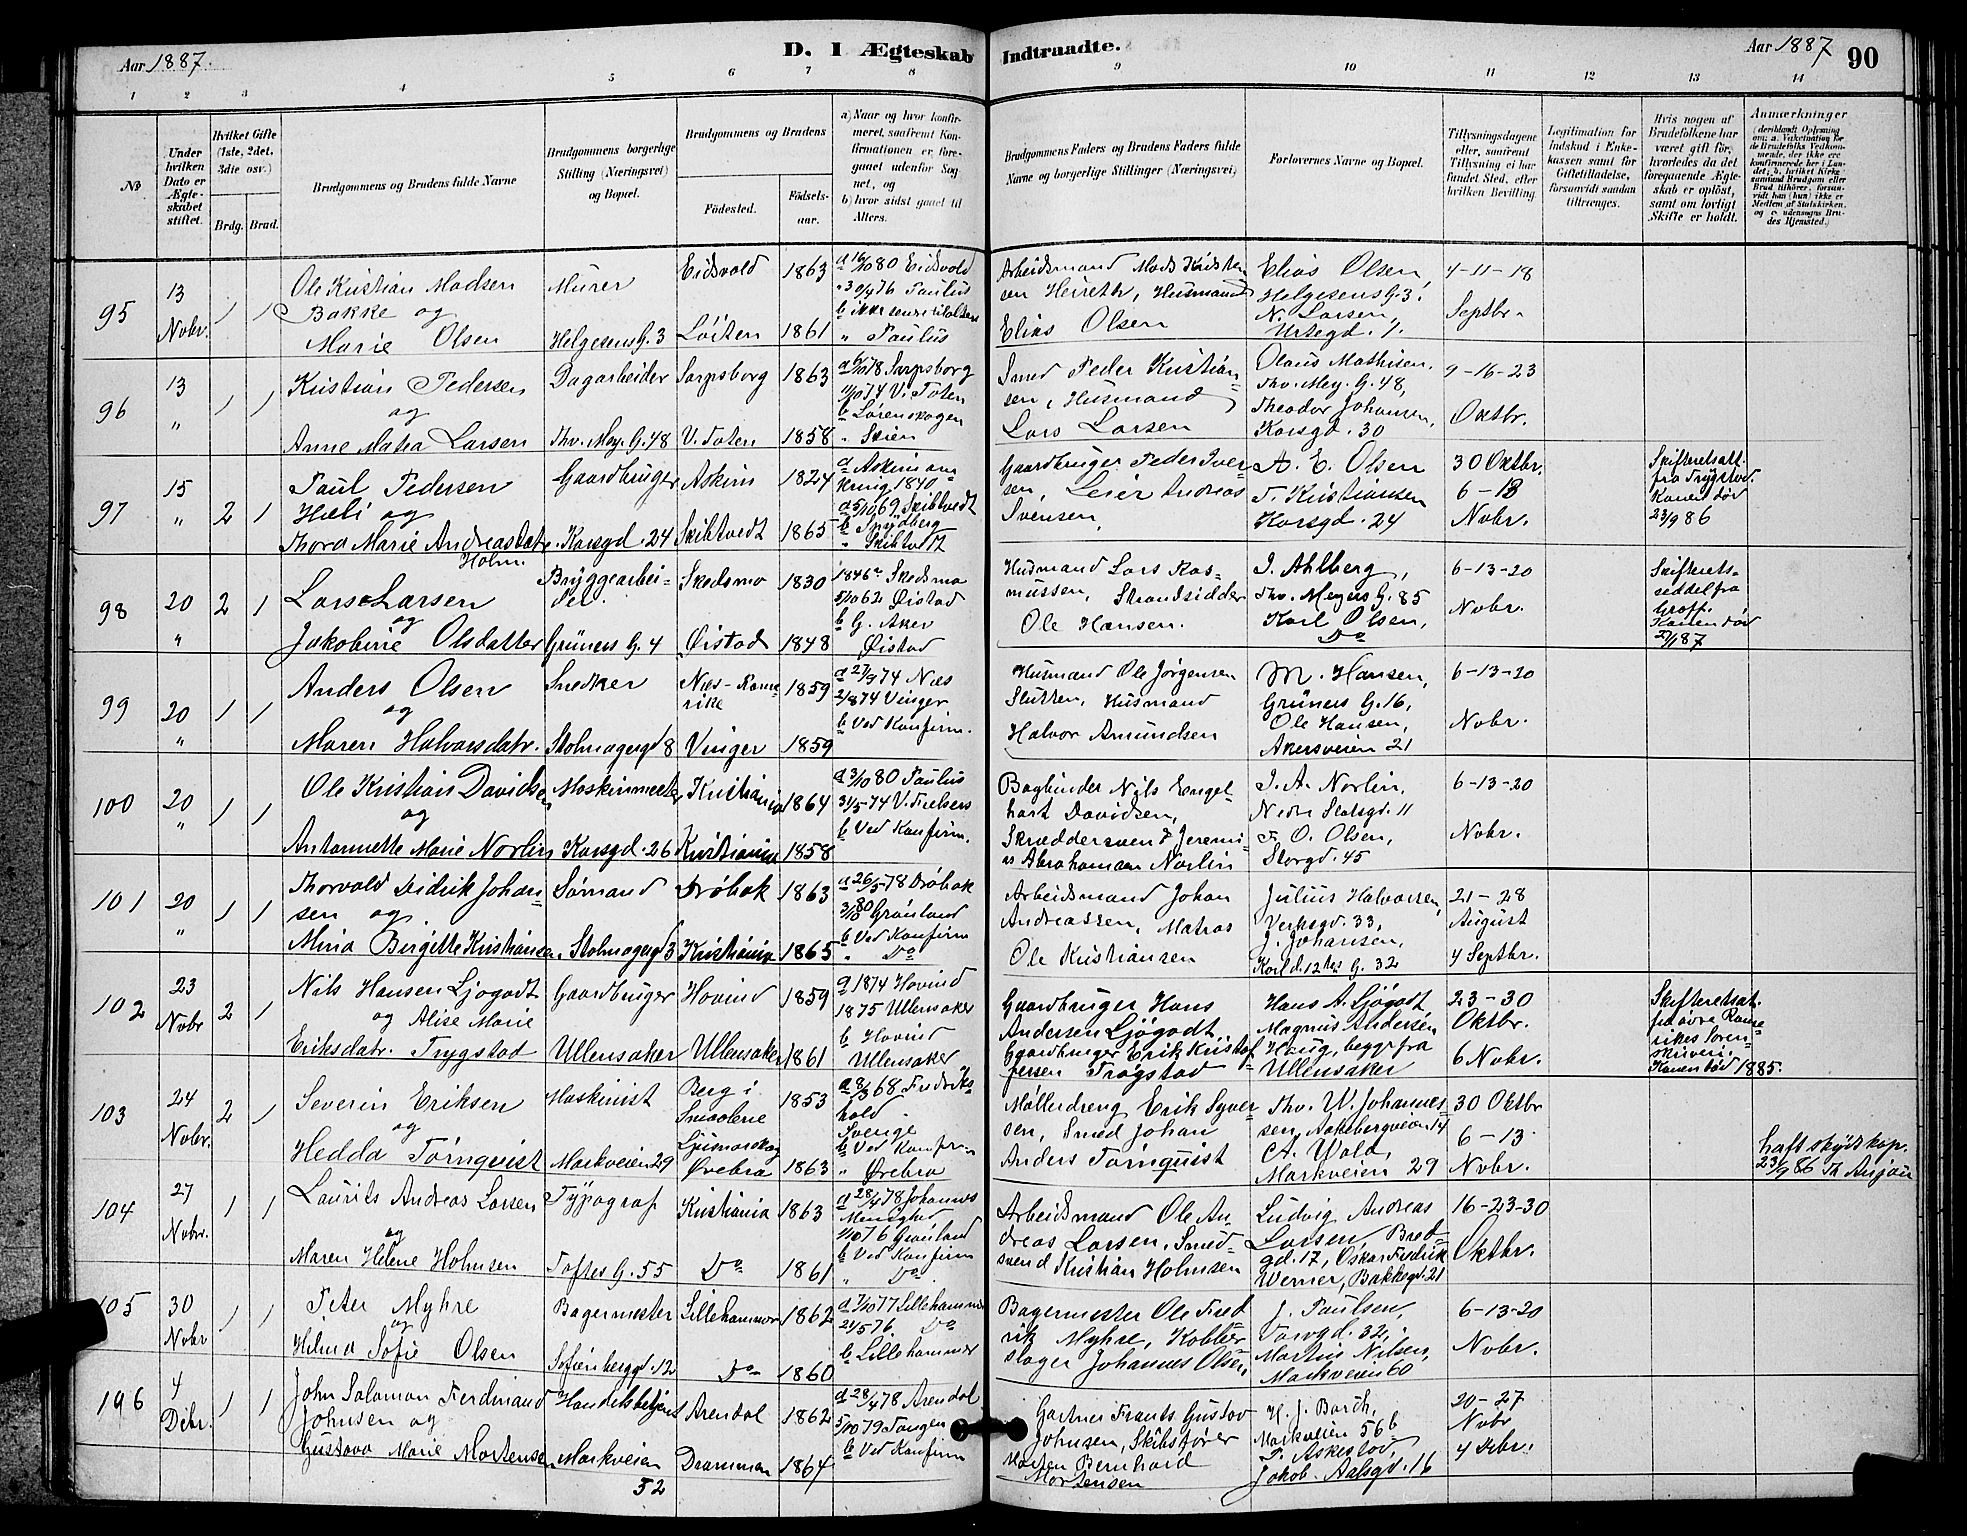 Aar 1887.
D. I Ægteskab Indtraadte.
Aar 1887
90
1 2 3 4 5 6 7 8 9 10 11 12 13 14
№
Under hvilken Dato er Ægteskabet stiftet.
Hvilket Gifte (1ste, 2det, 3die osv.)
Brdg. Brud.
Brudgommens og Brudens fulde Navne
Brudgommens borgerlige Stilling (Næringsvei) og Bopæl.
Brudgommens og Brudens
Fødested.
Fødselsaar.
a) Naar og hvor konfirmeret, saafremt Konfirmationen er foregaaet udenfor Sognet, og
b) hvor sidst gaaet til Alters.
Brudgommens Faders og Brudens Faders fulde Navne og borgerlige Stillinger (Næringsvei)
Forlovernes Navne og Bopæl.
Tillysningsdagene eller, saafremt Tillysning ei har fundet Sted, efter hvilken Bevilling
Legitimation for Indskud i Enkekassen samt for Giftetilladelse, forsaavidt saadan tiltrænges.
Hvis nogen af Brudefolkene har været gift før, hvorledes da det foregaaende Ægteskab er opløst, samt om lovligt Skifte er holdt.
Anmærkninger
95
13 Nobr.
1 1
Ole Kristian Madsen
Bakke og
Marie Olsen
Murer
Helgesens G. 3
Eidsvold 1863
Löiten 1861
a 16/10 80 Eidsvold
Paulus
" Paulus
Arbeidsmand Mads Kristen
sen Heireth, Husmand
Elias Olsen
Elias Olsen,
Helgesens G. 3.
N. Larsen,
Urtegd. 7.
4-11-18
Septbr.
96
13 "
1 1
Kristian Pedersen
og
Anne Maria Larsen
Dagarbeider
Thv. Mey. G. 48
Sarpsborg 1863
V. Toten 1858
a 6/10 78 Sarpsborg
11/10 74 V. Toten
b Lørenskogen
" Skien
Smed Peder Kristian-
sen, Husmand
Lars Larsen
Olaus Mathisen,
Thv. Mey. G. 48,
Theodor Johansen,
Korsgd. 30
9-16-23
Oktbr.
97
15 "
2 1
Paul Pedersen
Hæli og
Thora Marie Andreasdatr.
Holm.
Gaardbruger
Korsgd. 24
Askim 1824
Skibtvedt 1865
a Askim om-
kring 1840
a 5/10 69 Skibtvedt
b Spydberg
" Skibtvedt
Gaardbruger Peder Iver-
sen, Leier Andreas
Svensen,
A. E. Olsen
T. Kristiansen
Korsgd. 24
30 Oktbr.
6-13
Nobr.
Skifteretsatt.
fra Trygstad.
Konen död
23/9 86
98
20 "
2 1
Lars Larsen
og
Jakobine Olsdatter
Bryggearbei-
der.
Grüners G. 4
Skedsmo 1830
Øistad 1848
1846 Skedsmo
5/10 62 Øistad
b G. Aker
Øistad
Husmand Lars Ras-
mussen, Strandsidder
Ole Hansen.
I. Ahlberg,
Thv. Meyers G. 85
Karl Olsen,
Do
6-13-20
Nobr.
Skifterets-
seddel fra
Konen död
99
20 "
1 1
Anders Olsen
og
Maren Halvorsdatr.
Snedker
Stolmagergd 8
Næs-Rome-
rike 1859
Vinger 1859
a 27/9 74 Næs
2/8 74 Vinger
b Ved Konfirm.
Husmand Ole Jörgensen
Slutten, Husmand
Halvor Amundsen
M. Hansen,
Grüners G. 16,
Ole Hansen,
Akersveien 21
6-13-20
Nobr.
100
20 "
1 1
Ole Kristian Davidsen
og
Antonnette Marie Norlin
Maskinmester
Korsgd. 26
Kristiania 1864
Kristiania 1858
a 3/10 80 Paulus
31/5 74 V. Frelsers
b Ved Konfirm.
Bogbinder Nils Engel-
hart Davidsen,
Skræddersvend Jeremi-
as Abrahamsen Norlin
J. A. Norlin,
Nedre Slotsgd. 11
F. O. Olsen,
Storgd. 45
6-13-20
Nobr.
101
20 "
1 1
Thorvald Didrik Johan-
sen og
Mina Bergitte Kristiansen.
Sömand
Stolmagergd 3
Dröbak 1863
Kristiania 1865
a 26/5 78 Dröbak
3/10 80 Grönland
b Ved Konfirm
" Do
Arbeidsmand Johan
Andreassen, Matros
Ole Kristiansen
Julius Halvorsen,
Verksgd. 33,
J. Johansen,
Karl d. 12tes G. 32
21-28
August
4 Septbr.
102
23 Nobr
2 1
Nils Hansen Ljögodt
og Alise Marie
Eriksdatr. Trygstad
Gaardbruger
Ullensaker
Hovind 1859
Ullensaker 1861
a 1874 Hovind
1875 Ullensaker
b Hovind
Ullensaker
Gaardbruger Hans
Andersen Ljögodt,
Gaardbruger Erik Kristof-
fersen Trögstad
Hans A. Ljögodt
Magnus Andersen
Haug, begge fra
Ullensaker
23-30
Oktbr.
6 Nobr.
Skifteretsat.
fra övre Rome-
rikes Soren-
skriveri.
Konen död 1885.
103
24 Nobr.
2 1
Severin Eriksen
og
Hedda Törnquist
Maskinist
Markveien 29
Berg i
Smaalene 1853
Ørebro 1863
a 8/3 68 Fredriks-
hald
Sverige
b Ved Konfirm
" Ørebro
Möllerdreng Erik Syver-
sen, Smed Johan
Anders Törnquist
Thv. W. Johannes-
sen, Aakebergveien 14
A. Wold,
Markveien 29
30 Oktbr
6-13
Nobr.
104
27 Nobr.
1 1
Laurits Andreas Larsen
og
Maren Helene Holmsen
Typograf
Toftes G. 55
Kristiania 1863
Do 1861
a 28/4 78 Johannes
Menighed
1/10 76 Grönland
b Ved Konfirm
" Do
Arbeidsmand Ole An-
dreas Larsen, Smed-
svend Kristian Holmsen
Ludvig Andreas
Larsen, Bred-
gd. 17, Oskar Fredrik
Werner, Bakkegd. 21
16-23-30
Oktbr.
105
30 Nobr
1 1
Peter Myhre
og
Hilma Sofie Olsen
Bagermester
Sofienberggd. 12
Lillehammer 1862
Do 1860
a 7/10 77 Lillehammer
21/5 76 Do
b Lillehammer
Bagermester Ole Fred
rik Myhre, Kobber-
slager Johannes Olsen,
J. Paulsen,
Torvgd. 32,
Martin Nilsen,
Markveien 60
6-13-20
Nobr.
196
4 Debr.
1 1
John Salomon Ferdinand
Johnsen og
Gustava Marie Mortensen
Handelsbetjent
Markveien
52
Arendal 1862
Drammen 1864
a 28/4 78 Arendal
5/10 79 Tangen
b Ved Konfirm
Gartner Frants Gustav
Johnsen, Skibsförer
Morten Bernhard
Mortensen
H. J. Borch,
Markveien 56b
T. Askestad,
Jakob Aalsgd. 16
20-27
Nobr
4 Debr.